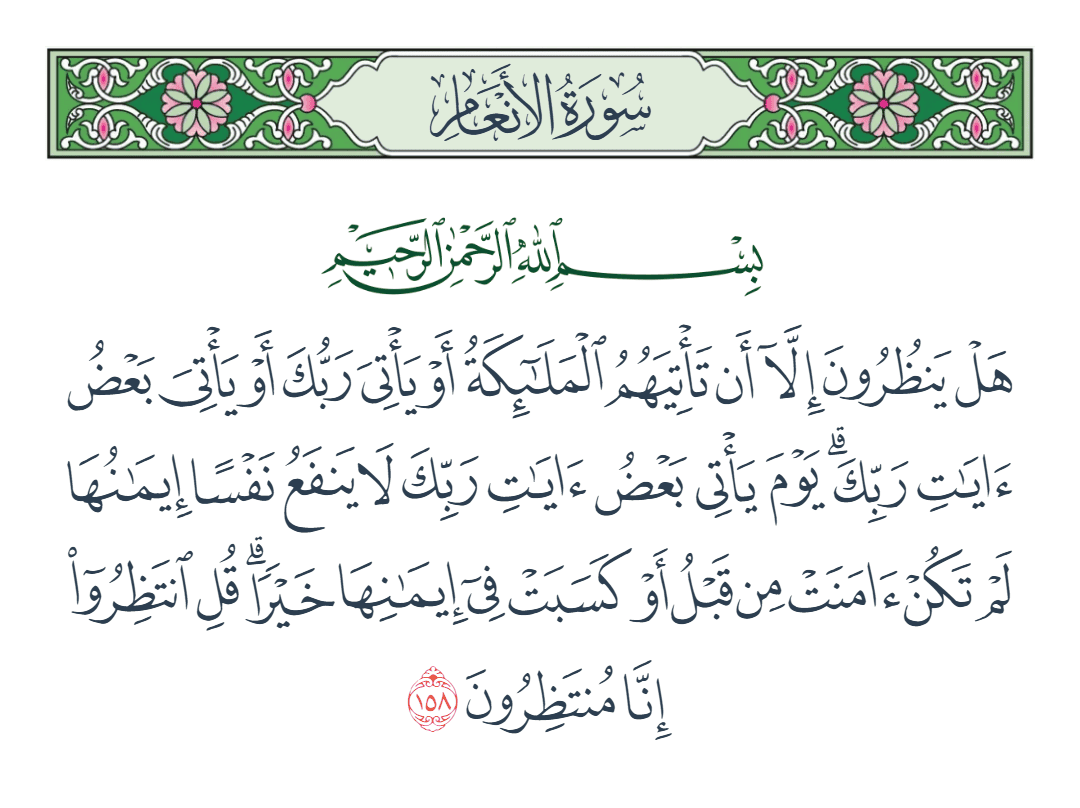 سُورَةُ الأَنْعَامِ
بِسْمِ ٱللَّهِ ٱلرَّحْمَٰنِ ٱلرَّحِيمِ
هَلْ يَنظُرُونَ إِلَّآ أَن تَأْتِيَهُمُ ٱلْمَلَٰٓئِكَةُ أَوْ يَأْتِىَ رَبُّكَ أَوْ يَأْتِىَ بَعْضُ
ءَايَٰتِ رَبِّكَ ۗ يَوْمَ يَأْتِى بَعْضُ ءَايَٰتِ رَبِّكَ لَا يَنفَعُ نَفْسًا إِيمَٰنُهَا
لَمْ تَكُنْ ءَامَنَتْ مِن قَبْلُ أَوْ كَسَبَتْ فِىٓ إِيمَٰنِهَا خَيْرًا ۗ قُلِ ٱنتَظِرُوٓا۟
إِنَّا مُنتَظِرُونَ ١٥٨